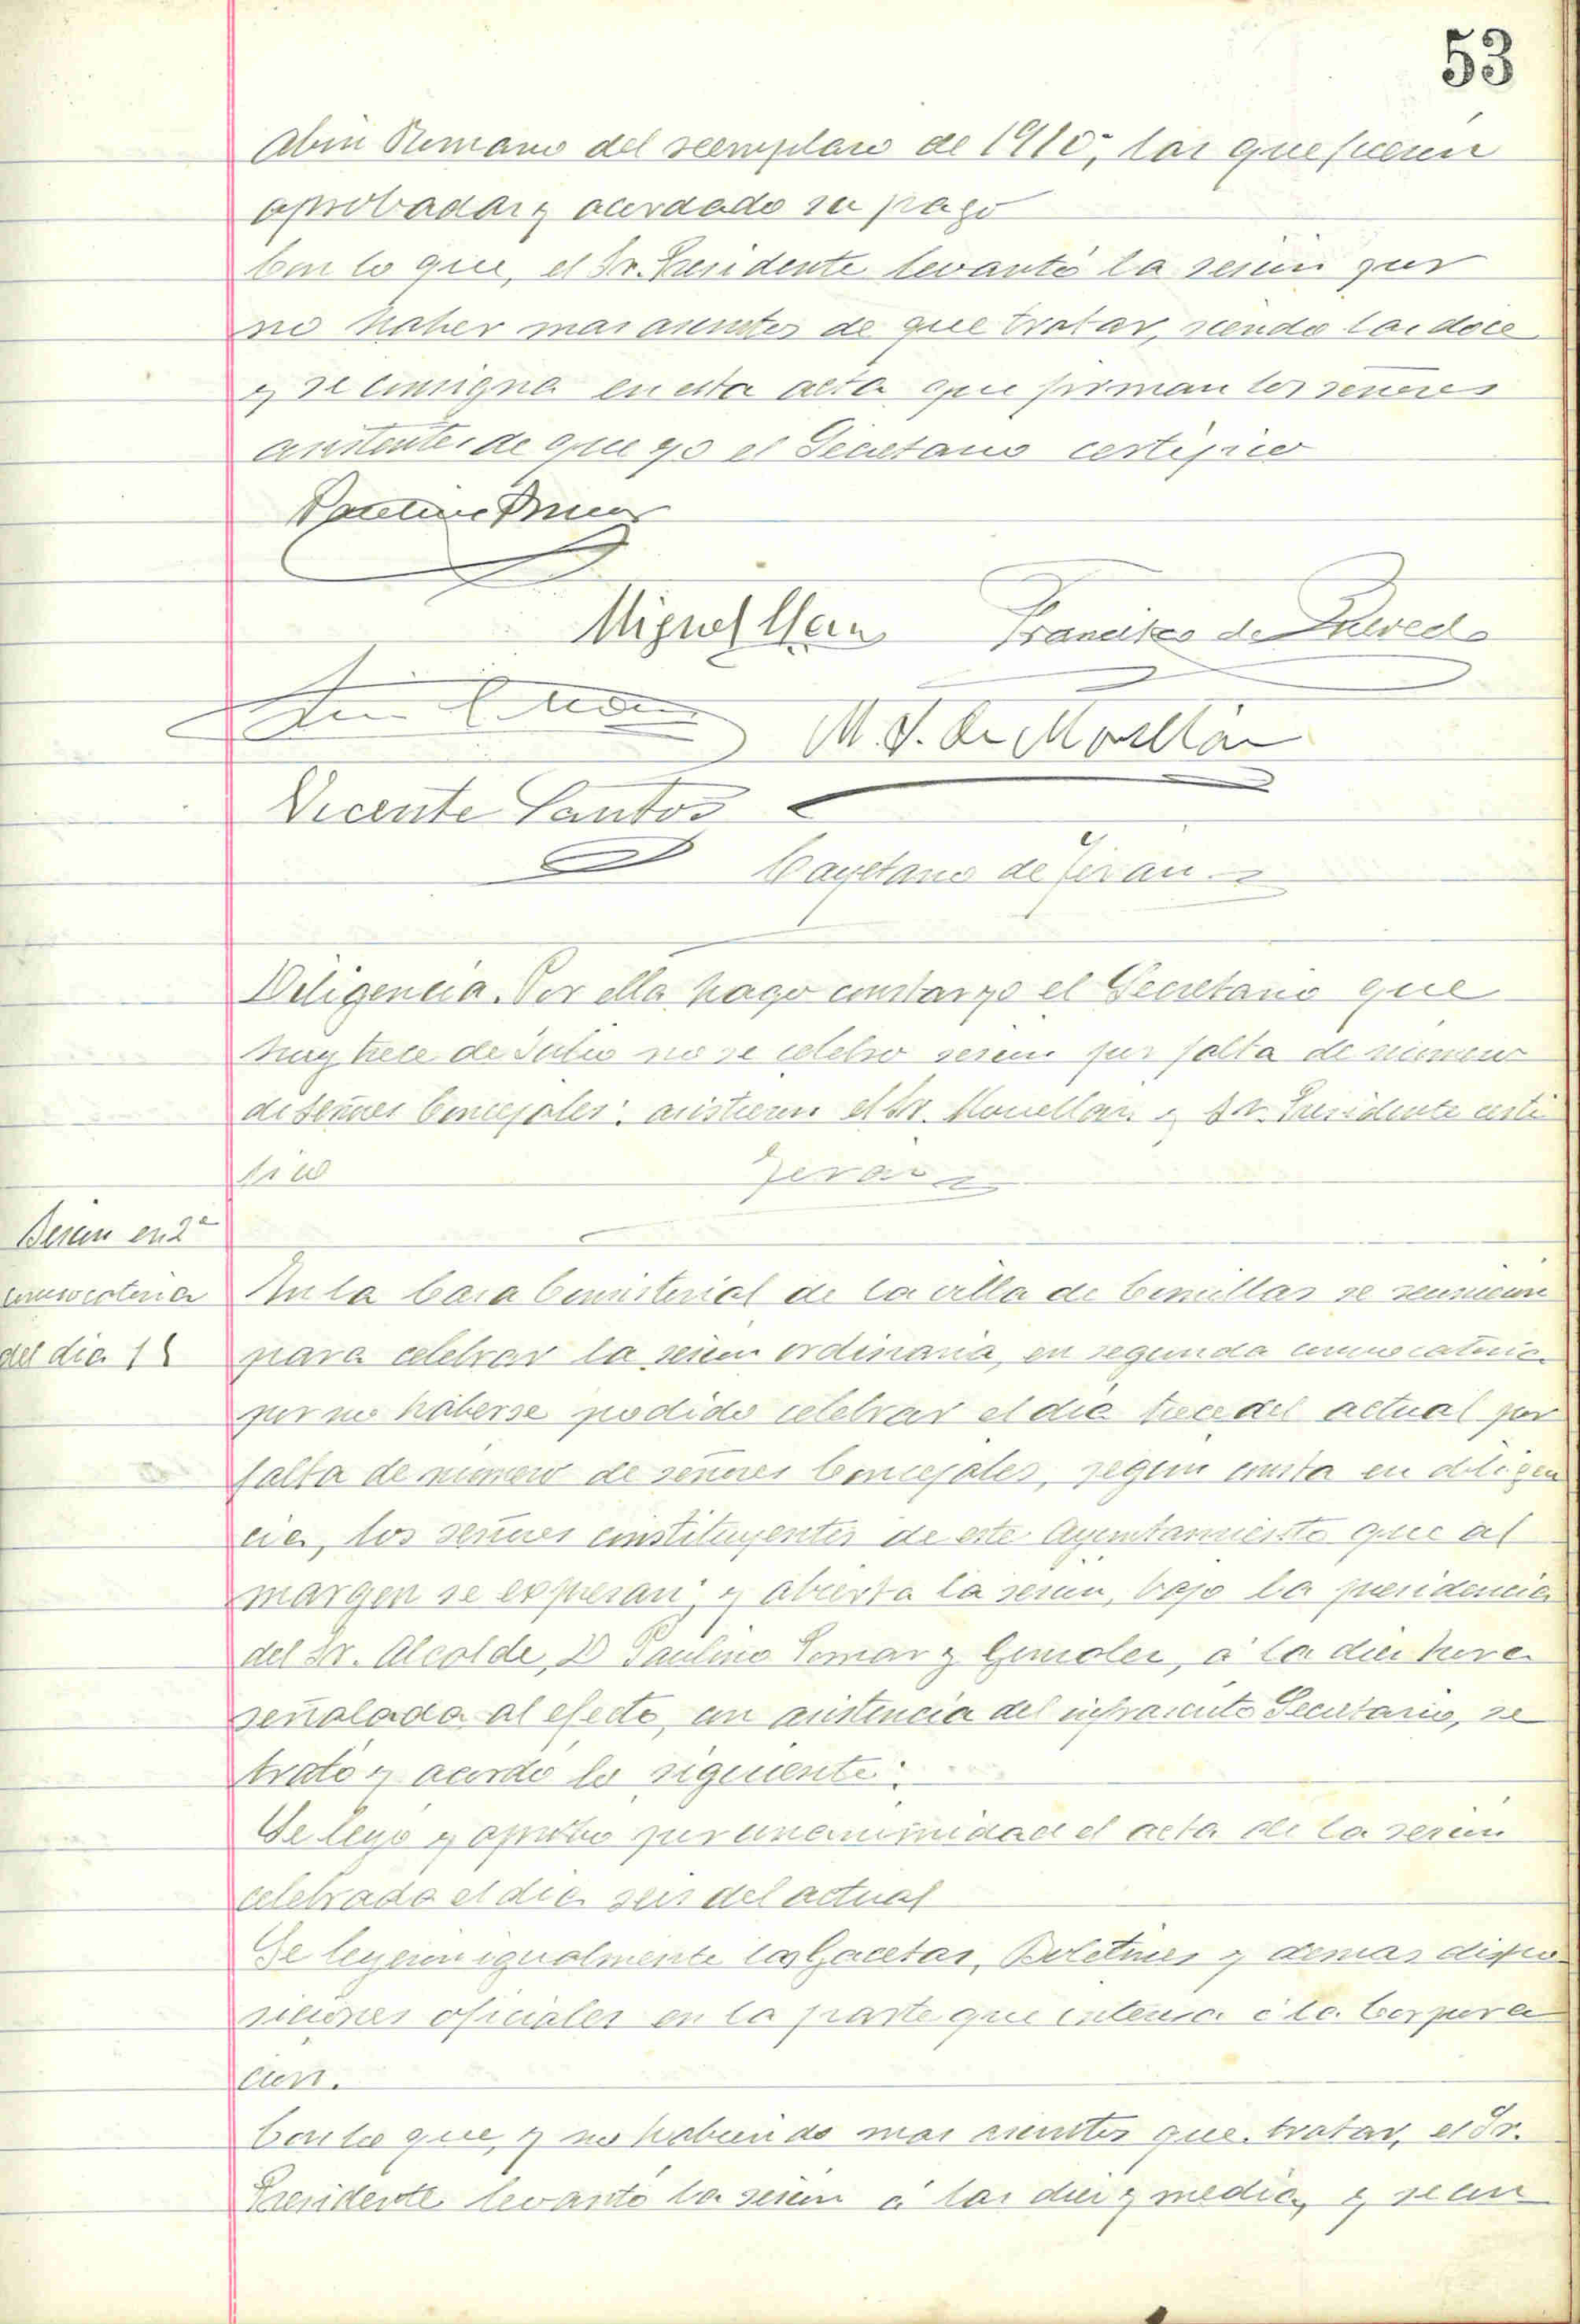 53
Abin Romano del reemplazo de 1910; las que fueron
aprobadas y acordado su pago
Con lo que, el Sr. Presidente levantó la sesion por
no haber mas asuntos de que tratar, siendo las doce
y se consigna en esta acta que firman los señores
asistentes de que yo el Secretario certifico
Miguel Francisco de Quevedo
M. S. de Movellán
Vicente Santos
Cayetano de Terán
Diligencia. Por ella hago constar yo el Secretario que
hoy trece de Julio no se celebro sesion por falta de número
de señores Concejales: asistieron el Sr. Movellan y Sr. Presidente certi
fico Terán
Sesion en 2ª
convocatoria
del dia 15
En la Casa Consistorial de la villa de Comillas se reunieron
para celebrar la sesion ordinaria, en segunda convocatoria
por no haberse podido celebrar el dia trece del actual por
falta de número de señores Concejales, segun consta en diligen
cia, los señores constituyentes de este Ayuntamiento que al
margen se expresan; y abierta la sesion, bajo la presidencia
del Sr. Alcalde, D Paulino Pomar y Gonzalez, á la diez hora
señalada al efecto, con asistencia del infrascrito Secretario, se
trató y acordó lo siguiente:
Se leyó y aprobó por unanimidad el acta de la sesion
celebrada el dia seis del actual
Se leyeron igualmente las Gacetas, Boletines y demas dispo
siciones oficiales en la parte que interesa á la Corpora
cion.
Con lo que, y no habiendo mas asuntos que tratar, el Sr.
Presidente levantó la sesion á las diez y media, y se con